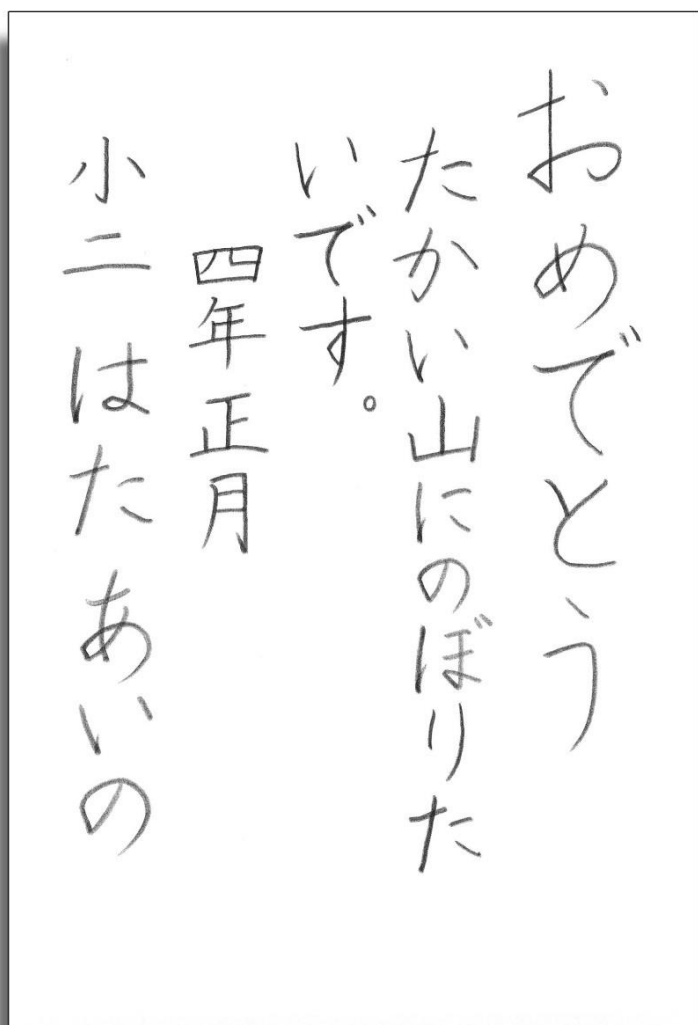 おめでとう
たかい山にのぼりた
いです。
四年正月
小二 はた あいの